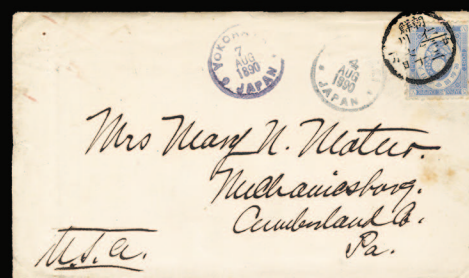 YOKOHAMA
7
AUG
1890
JAPAN
4
AUG
1890
JAPAN
Mrs Mary N. Mateer.
Mechanicsburg.
Cumberland Co.
Pa.
U.S.A.